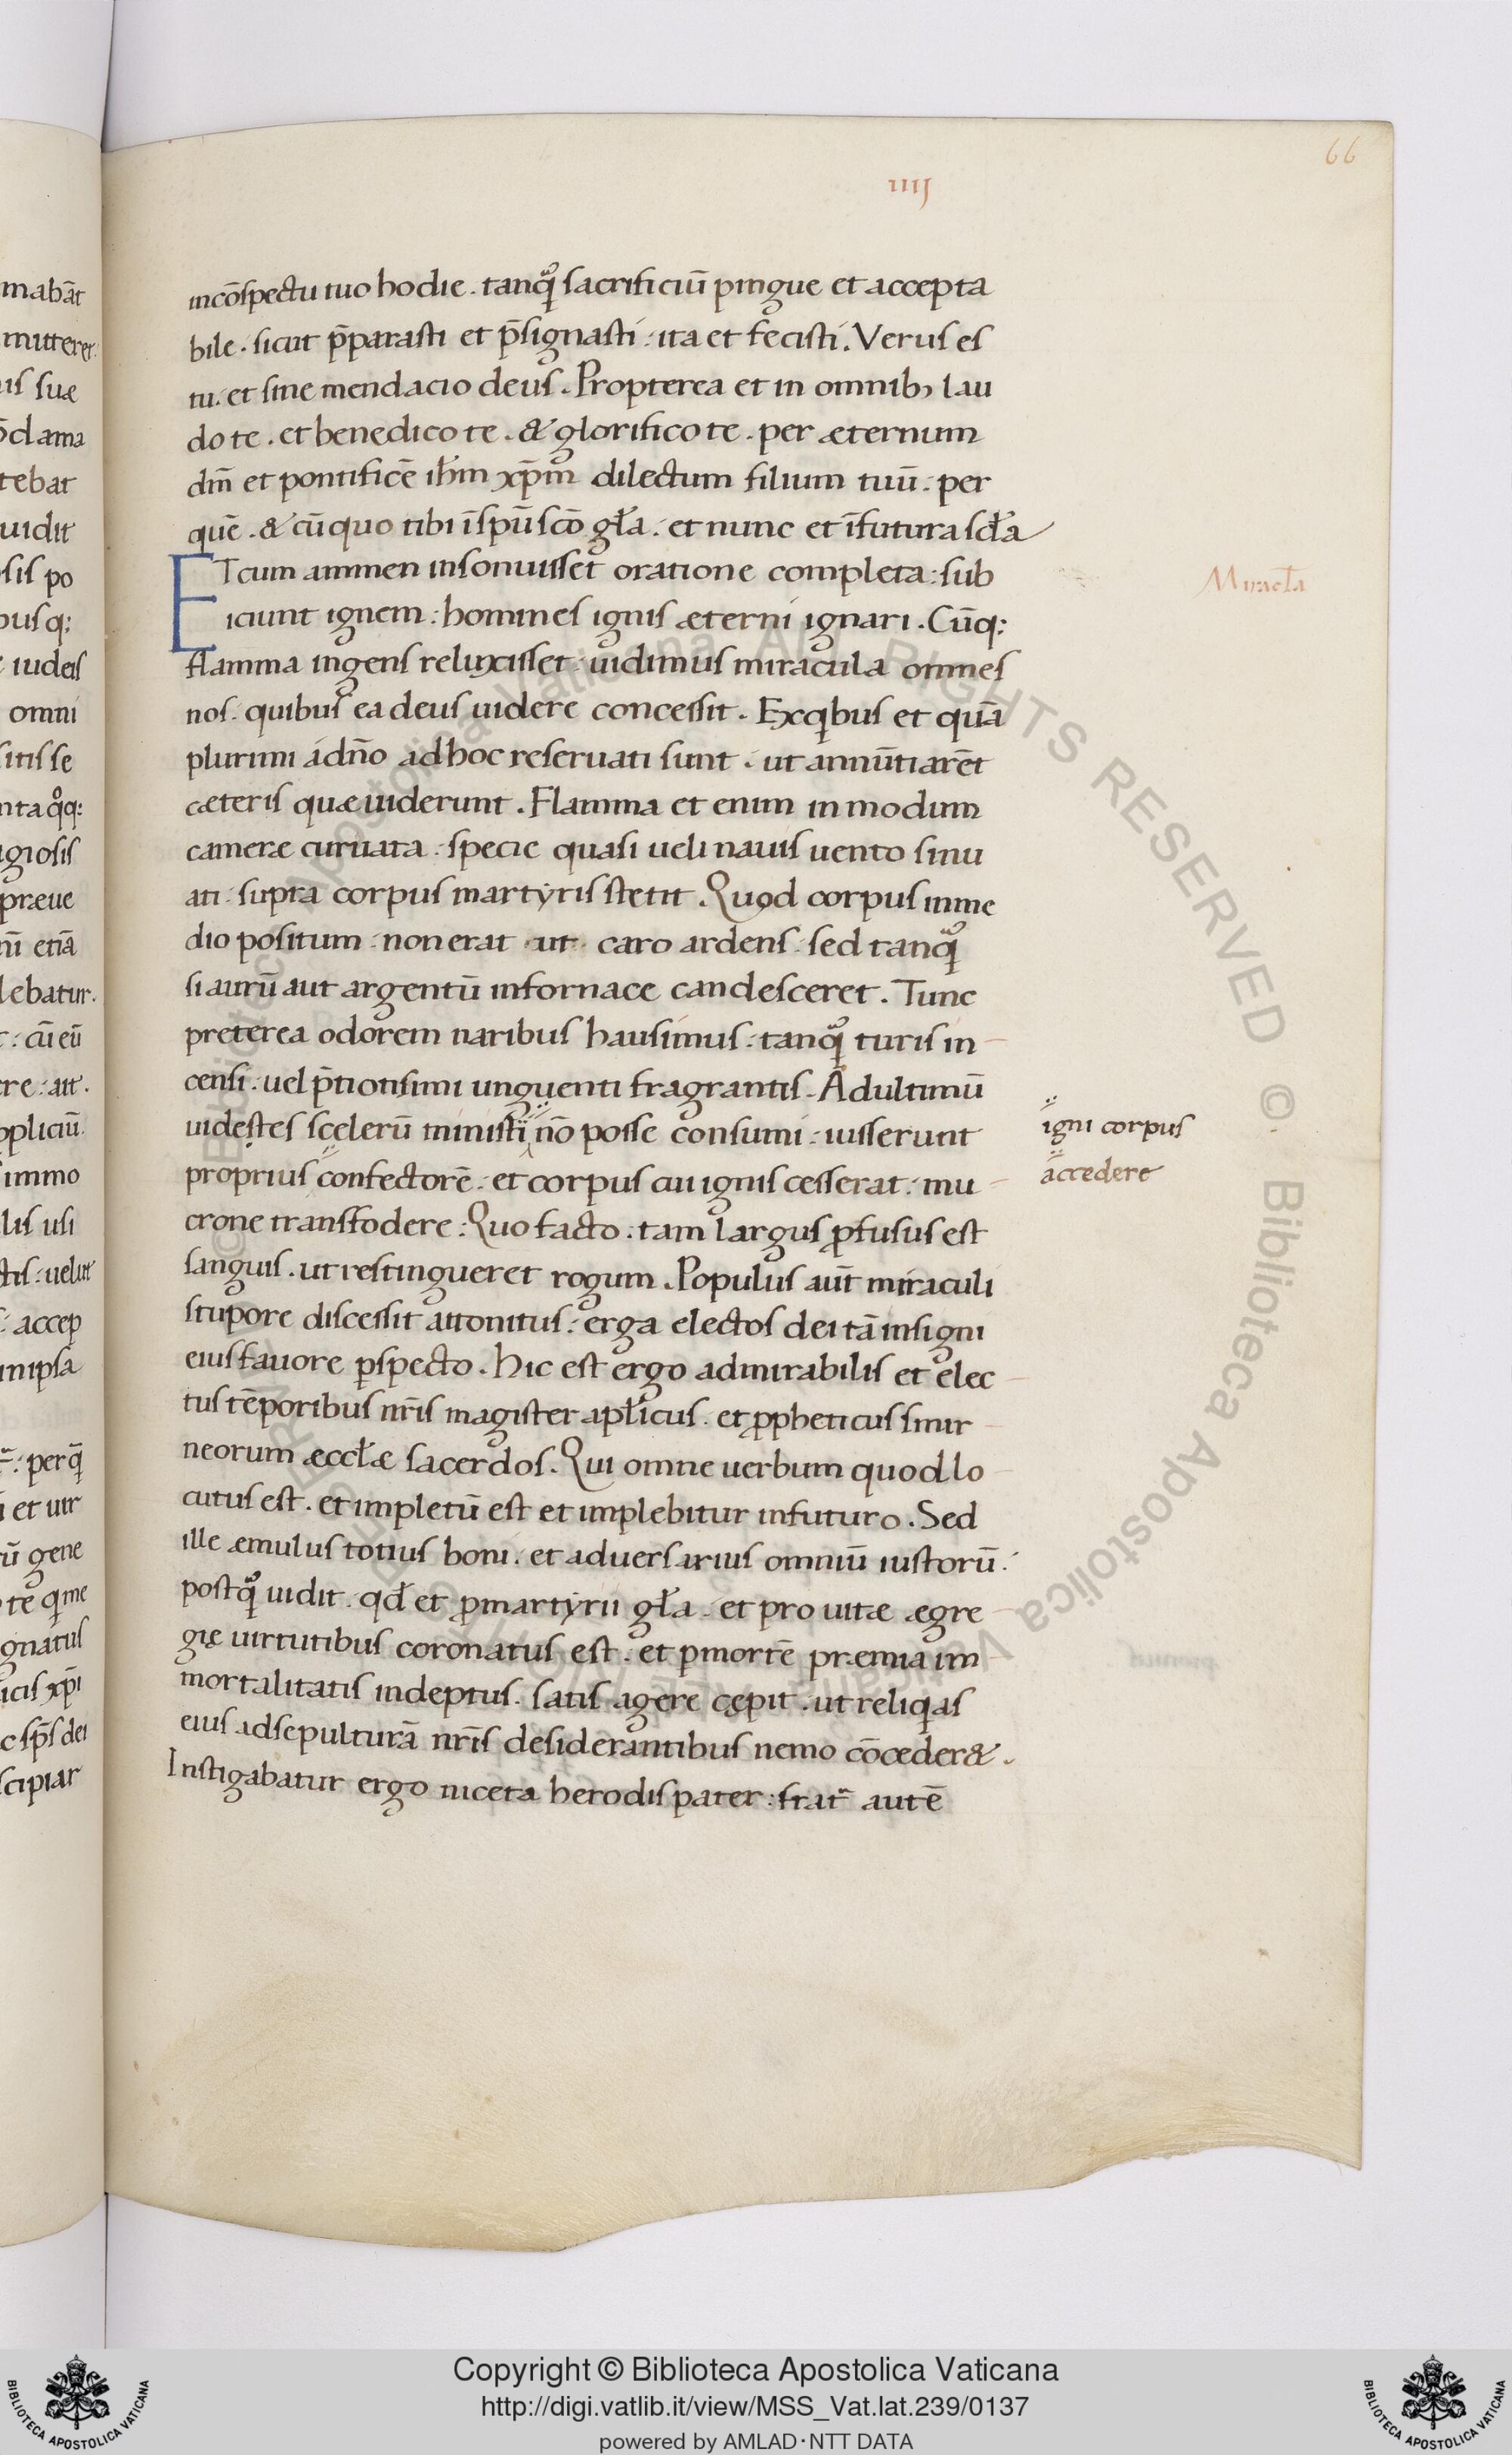 66
IIIJ
incōspectu tuo hodie . tanqͣ sacrificiū pingue et accepta
bile . sicut p̄parasti et p̄signasti : ita et fecisti . Verus es
tu . et sine mendacio deus . Propterea et in omnib; lau
do te . et benedico te . & glorifico te . per æternum
dm̄ et pontificē ihm̄ xp̄m dilectum filium tuū : per
quē . & cū quo tibi ī spū scō gła . et nunc et ī futura scła
ET cum ammen insonuisset oratione completa : sub
iciunt ignem : homines ignis æterni ignari . Cūq:
flamma ingens reluxisset : uidimus miracula omnes
nos . quibus ea deus uidere concessit . Ex qibus et quā
plurimi á dn̄o ad hoc reseruati sunt . ut annūtiarēt
cæteris quæ uiderunt . Flamma et enim in modum
cameræ curuata : specie quasi ueli nauis uento sinu
ati : supra corpus martyris stetit . Quod corpus in me
dio positum : non erat ut caro ardens : sed tanqͣ
si aurū aut argentū in fornace candesceret . Tunc
preterea odorem naribus hausimus : tanqͣ turis in
censi : uel p̄tiosissimi unguenti fragrantis . Ad ultimū
uidentes scelerū ministri nō posse consumi : iusserunt
igni corpus
proprius confectorē : et corpus cui ignis cesserat : mu
accedere
crone transfodere : Quo facto : tam largus ꝓfusus est
sanguis . ut restingueret rogum . Populus aūt miraculi
stupore discessit attonitus : erga electos dei tā insigni
eius fauore ꝑspecto . Hic est ergo admirabilis et elec
tus tēporibus nr̄is magister apłicus . et ꝓpheticus smir
neorum æccłæ sacerdos . Qui omne uerbum quod lo
cutus est . et impletū est et implebitur in futuro . Sed
ille æmulus totius boni . et aduersarius omniū iustorū :
postqͣ uidit . qđ et ꝓ martyrii gła . et pro uitæ ægre
gię uirtutibus coronatus est . et ꝑ mortē præmia im
mortalitatis indeptus . satis agere cępit . ut reliqas
eius ad sepulturā nr̄is desiderantibus nemo cōceder& .
Instigabatur ergo niceta herodis pater : frat̄ autē
Miracła
mabāt
mitteret:
uis suæ
ōclama
tebat
uidit
sis po
pusq:
iudeis
omni
sitis se
nta qͦq:
giosis
præue
nī etiā
lebatur.
: cū eū
re : att.
ppliciū.
immo
lis usi
ctis : uelut
: accep
in ipsa
: per q̄
et uir
rū gene
te qi me
gnatus
icis xp̄i
c sp̄s dei
scipiar
Copyright © Biblioteca Apostolica Vaticana
http://digi.vatlib.it/view/MSS_Vat.lat.239/0137
powered by AMLAD·NTT DATA